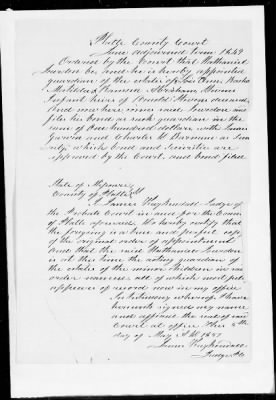 Platte County Court
June adjourned term 1849
Ordered by the Court that Nathaniel
be and he is hereby appointed
guardian of the estate of Ann,
Matilda, Abraham
Infant heirs of deceased
And now here comes and
files his bond as such guardian in the
sum of One hundred dollars with
and Charles as
which bond and Securities are
approved by the Court, and bond filed
State of Missouri
County of Platte
I James Kuykendall Judge of
the Probate Court in and for the County
of Platte aforesaid do hereby certify that
the foregoing is a true and perfect copy
of the original order of appointment
and that the said Nathaniel
is at this time the acting guardian of
the estates of the minor children in said
order named all of which
appears of record now in my office
In testimony whereof I have
hereunto signed my name
and affixed the seal of said
Court at office this 8th
day of May A.D. 1851
James Kuykendall
Judge